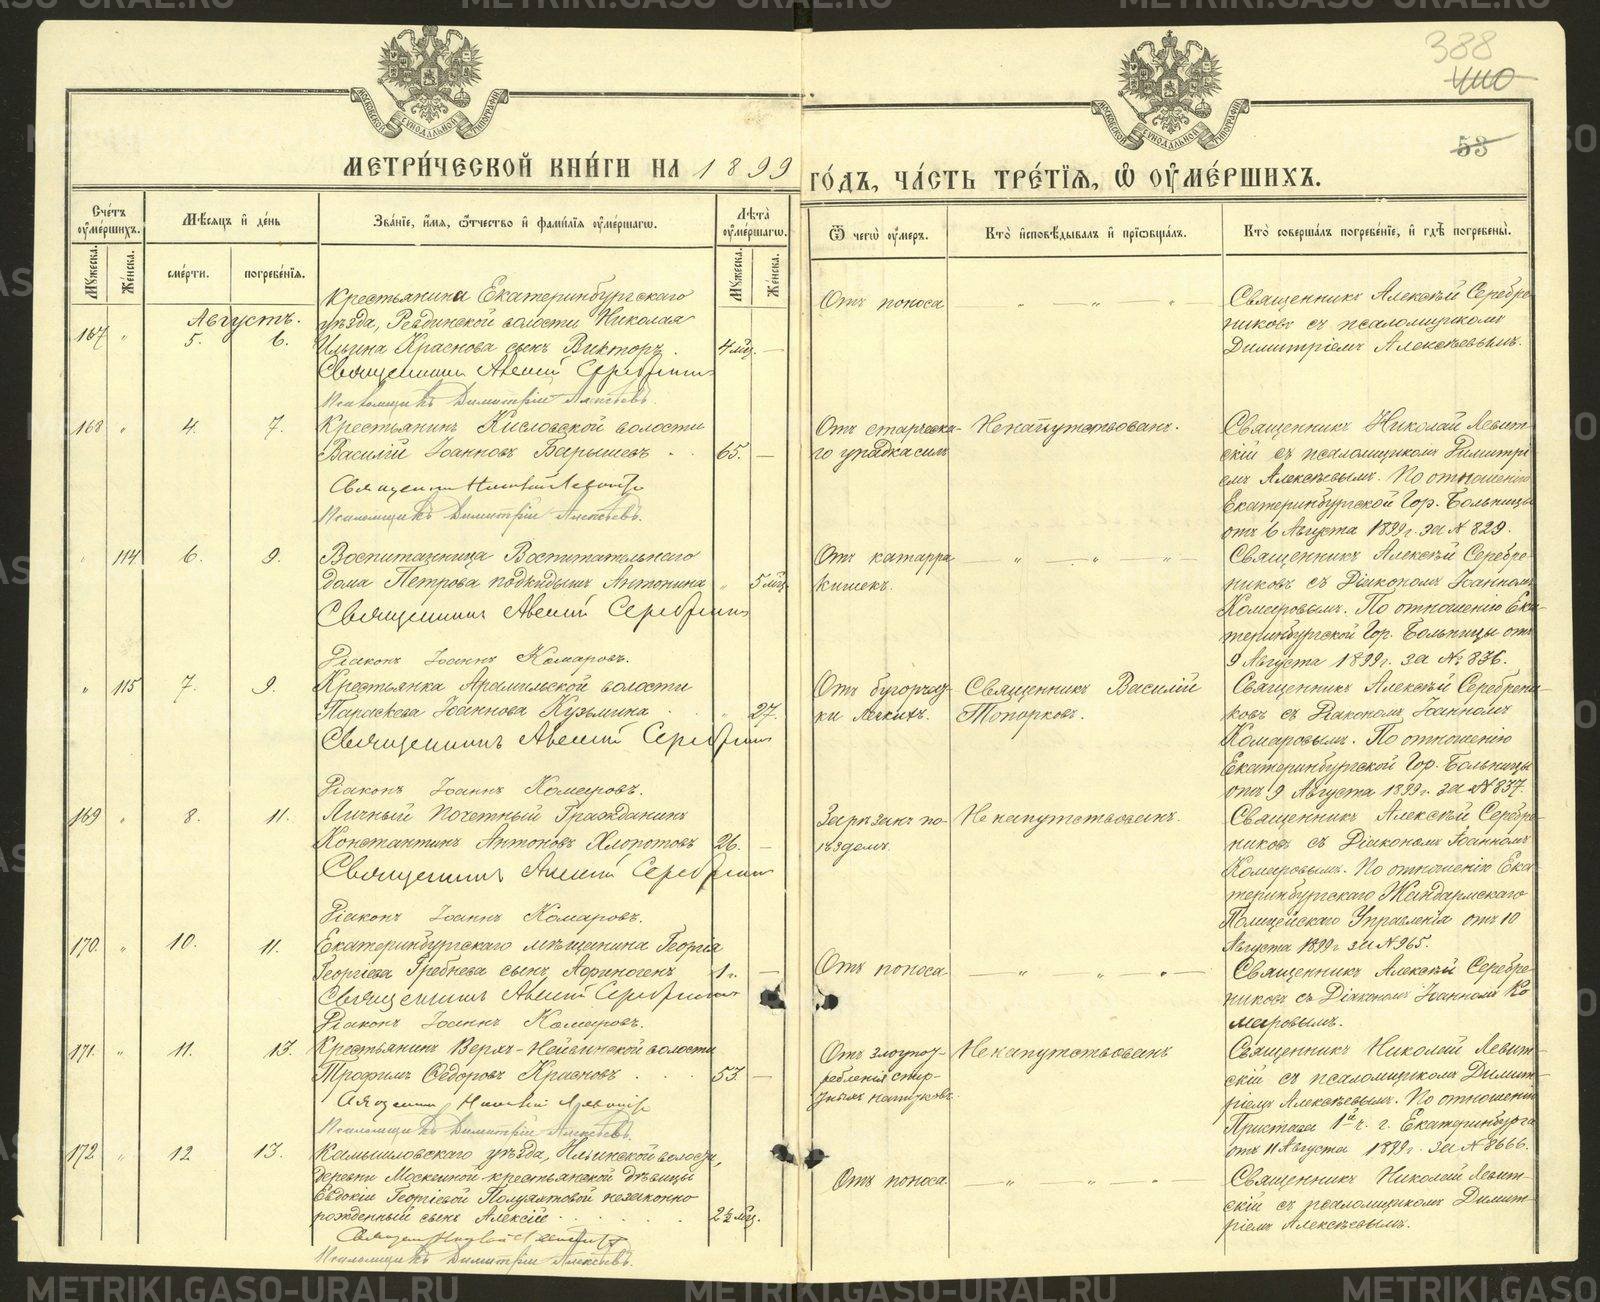 METRIKI.GASO-URAL.RU
388
4110
53
МОСКОВСКОЙ СѴНОДАЛЬНОЙ ТИПОГРАФІИ
МОСКОВСКОЙ СѴНОДАЛЬНОЙ ТИПОГРАФІИ
МЕТРИ́ЧЕСКОЙ КНИ́ГИ НА 1899 ГО́ДЪ, ЧА́СТЬ ТРЕ́ТЇѦ, Ѡ ОУМЕ́РШИХЪ.
Сче́тъ оуме́ршихъ.
Мꙋжеска.
Же́нска.
Мѣ́сѧцъ и де́нь
сме́рти.
погребе́нїѧ.
Зва́нїе, и́мѧ, о́тчество и фами́лїѧ оуме́ршагѡ.
Лѣ́та оуме́ршагѡ.
Мꙋжеска.
Же́нска.
Ѿ чегѡ̀ оу́меръ.
Кто̀ исповѣ́дывалъ и прїѡбща́лъ.
Кто̀ соверша́лъ погребе́нїе, и гдѣ̀ погребены̀.
Августъ.
167 " 5. 6.
Крестьянина Екатеринбургскаго
уѣзда, Ревдинской волости Николая
Ильина Краснова сынъ Викторъ. 4 мѣс. —
Священникъ Алексій Серебренниковъ
Псаломщикъ Димитрій Алексѣевъ.
Отъ поноса — " — " — " —
Священникъ Алексѣй Серебре-
никовъ съ псаломщикомъ
Димитріемъ Алексѣевымъ.
168 " 4. 7.
Крестьянинъ Кисловской волости
Василій Іоанновъ Барышевъ . . 65. —
Священникъ Николай Левитскій
Псаломщикъ Димитрій Алексѣевъ.
Отъ старческа-
го упадка силъ
Ненапутствованъ.
Священникъ Николай Левит-
скій съ псаломщикомъ Димитрі-
емъ Алексѣевымъ. По отношенію
Екатеринбургской Гор. Больницы
отъ 6 Августа 1899 г. за № 829.
" 114 6. 9.
Воспитанница Воспитательнаго
дома Петрова подкидышъ Антонина " 5 мѣс.
Священникъ Алексій Серебренниковъ
Діаконъ Іоаннъ Комаровъ.
Отъ катарра
кишекъ.
— " — " — " —
Священникъ Алексѣй Серебре-
никовъ съ Діакономъ Іоанномъ
Комаровымъ. По отношенію Ека-
теринбургской Гор. Больницы отъ
9 Августа 1899 г. за № 836.
" 115 7. 9.
Крестьянка Арамильской волости
Параскева Іоаннова Кузьмина . . " 27.
Священникъ Алексій Серебренниковъ
Діаконъ Іоаннъ Комаровъ.
Отъ бугорчат-
ки легкихъ.
Священникъ Василій
Топорковъ.
Священникъ Алексѣй Серебрени-
ковъ съ Діакономъ Іоанномъ
Комаровымъ. По отношенію
Екатеринбургской Гор. Больницы
отъ 9 Августа 1899 г. за № 837.
169 " 8. 11.
Личный Почетный Гражданинъ
Константинъ Антоновъ Хлопотовъ 26. —
Священникъ Алексій Серебренниковъ
Діаконъ Іоаннъ Комаровъ.
Зарѣзанъ по-
ѣздомъ.
Ненапутствованъ.
Священникъ Алексѣй Серебре-
никовъ съ Діакономъ Іоанномъ
Комаровымъ. По отношенію Ека-
теринбургскаго Жандармскаго
Полицейскаго Управленія отъ 10
Августа 1899 г. за № 965.
170. " 10. 11.
Екатеринбургскаго мѣщанина Георгія
Георгіева Гребнева сынъ Афиногенъ 1 г. —
Священникъ Алексій Серебренниковъ
Діаконъ Іоаннъ Комаровъ.
Отъ поноса — " — " — " —
Священникъ Алексѣй Серебре-
никовъ съ Діакономъ Іоанномъ Ко-
маровымъ.
171. " 11. 13.
Крестьянинъ Верхъ-Нейвинской волости
Трофимъ Ѳедоровъ Красновъ . . . 53 —
Священникъ Николай Левитскій
Псаломщикъ Димитрій Алексѣевъ.
Отъ злоупот-
ребленія спир-
тныхъ напитковъ.
Ненапутствованъ
Священникъ Николай Левит-
скій съ псаломщикомъ Димит-
ріемъ Алексѣевымъ. По отношенію
Пристава 1й ч. г. Екатеринбурга
отъ 11 Августа 1899 г. за № 8666.
172 " 12 13.
Камышловскаго уѣзда, Ильинской волости,
деревни Москвиной крестьянской дѣвицы
Евдокіи Георгіевой Полуяхтовой незаконно-
рожденный сынъ Алексій . . . . . 2½ мѣс.
Священникъ Николай Левитскій
Псаломщикъ Димитрій Алексѣевъ.
Отъ поноса — " — " — " —
Священникъ Николай Левит-
скій съ псаломщикомъ Димит-
ріемъ Алексѣевымъ.
METRIKI.GASO-URAL.RU